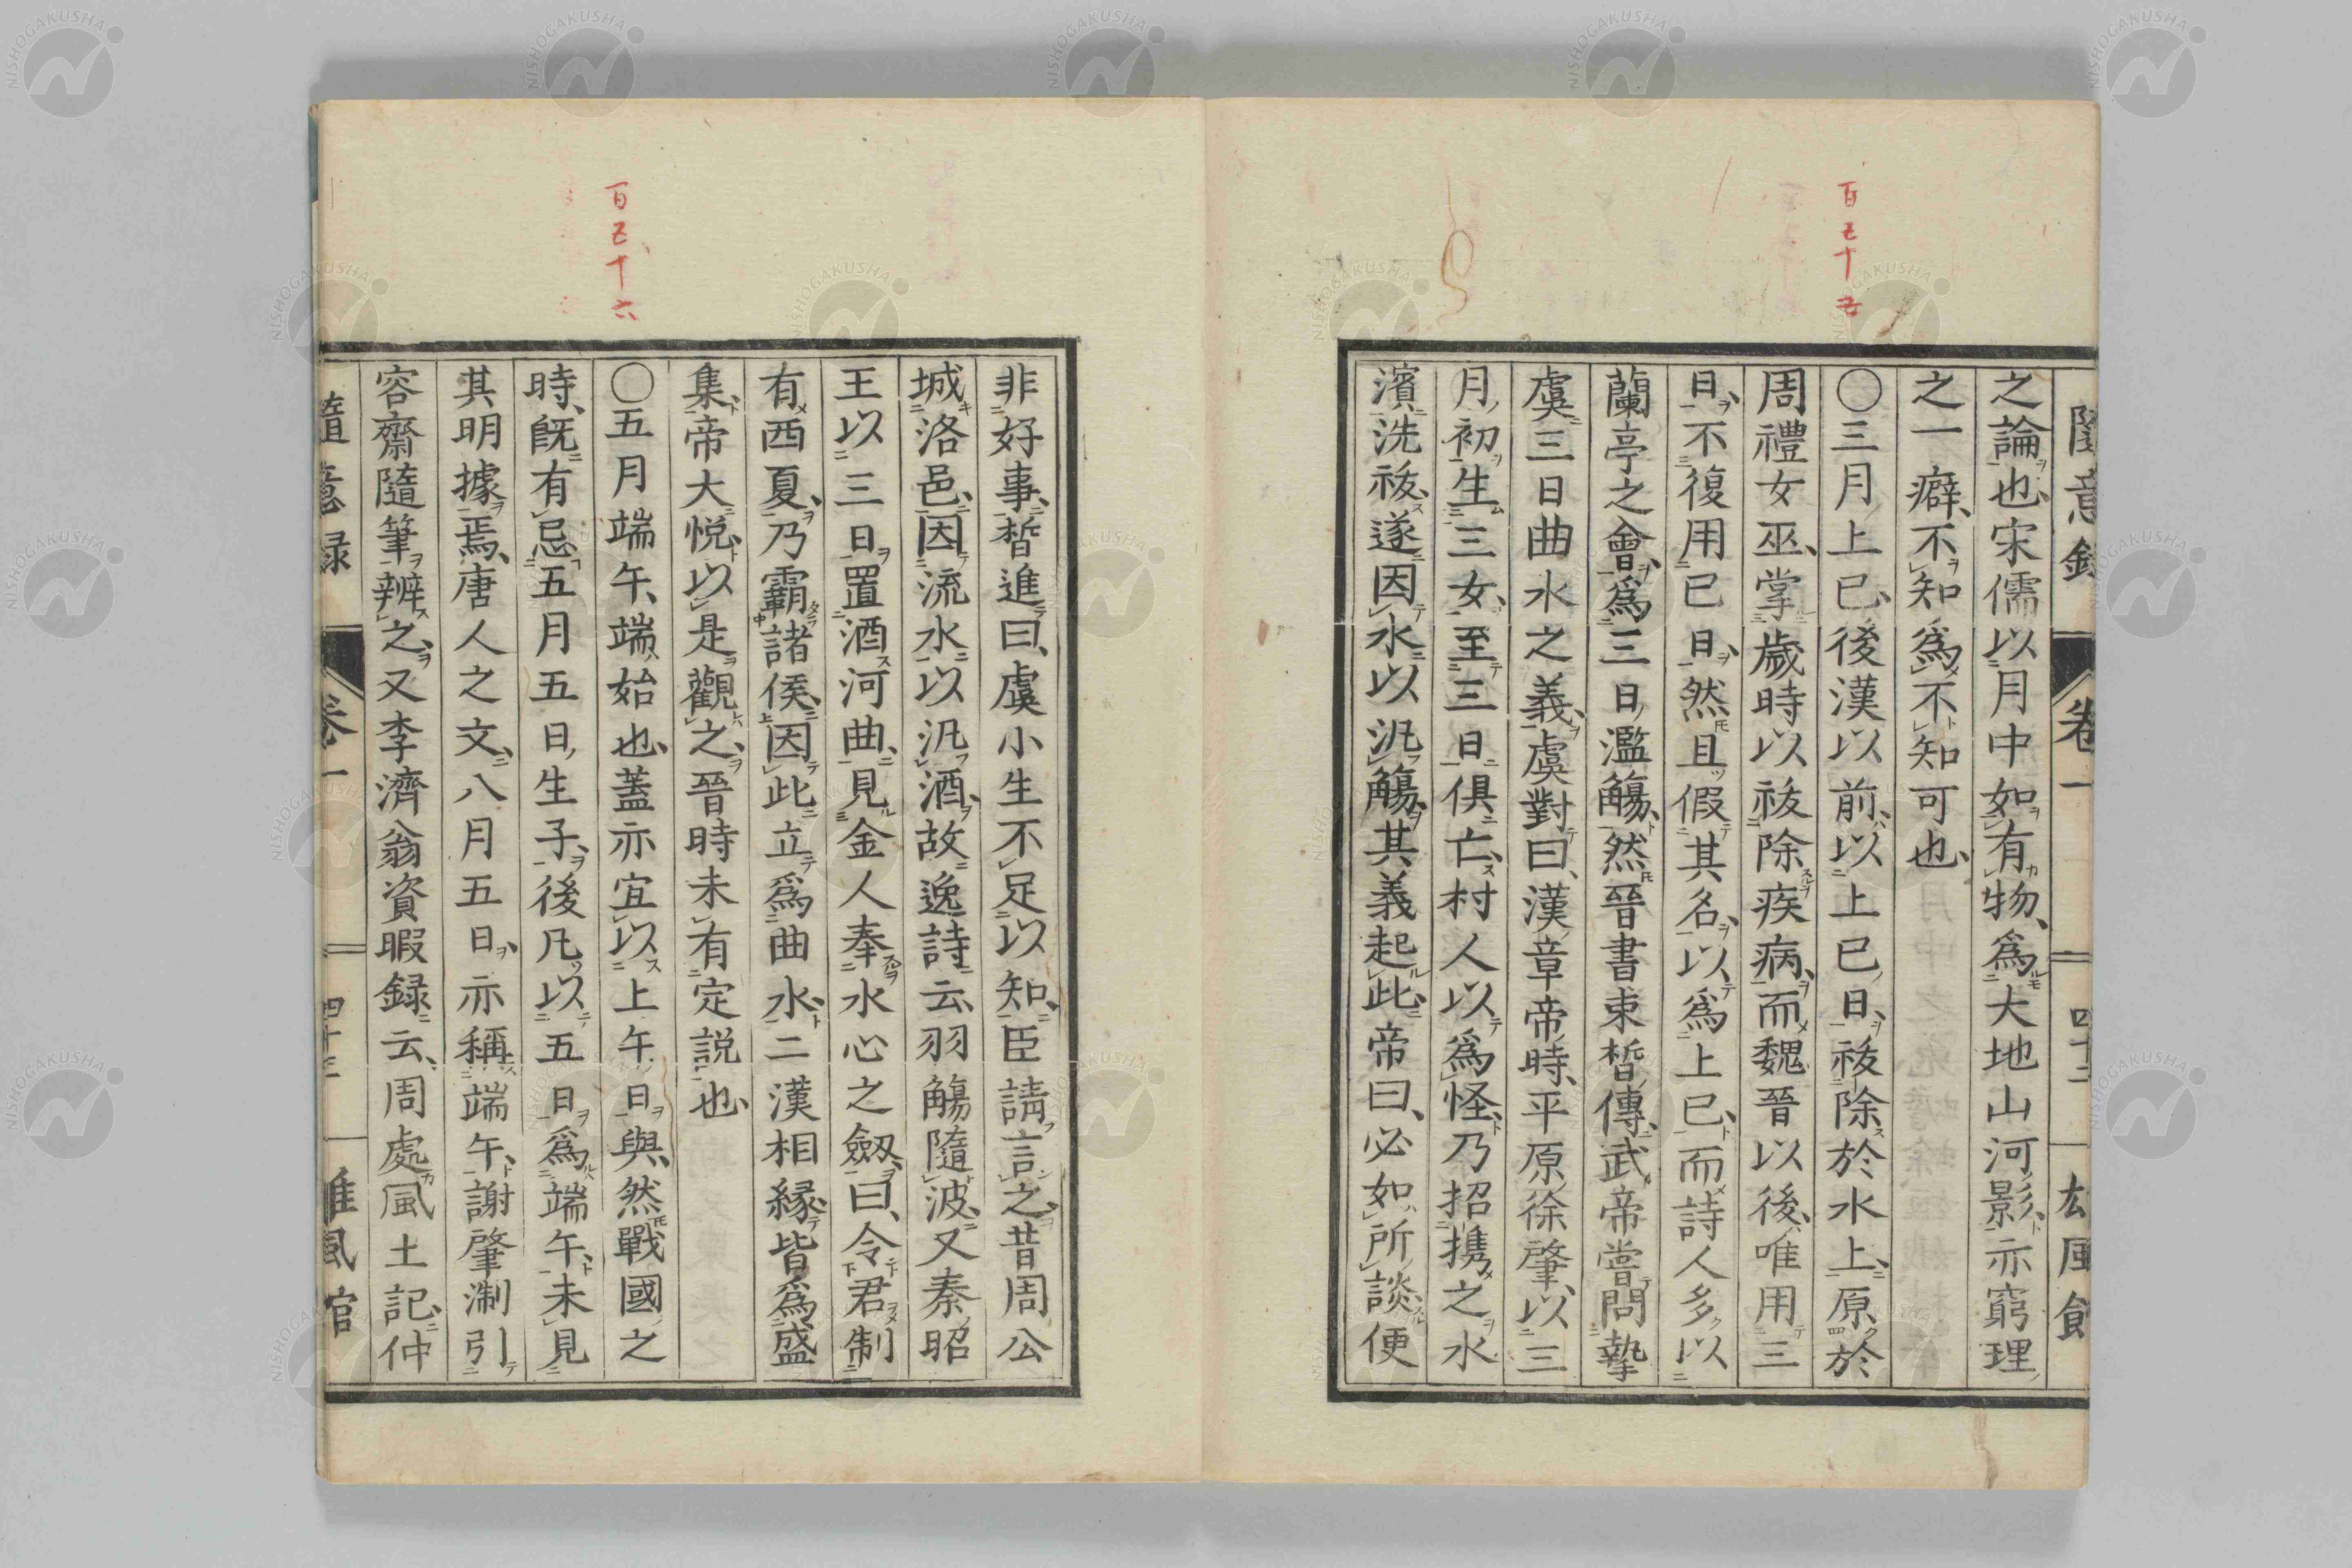 百五十五
隨意錄 卷一 四十二 雄風館
之論也宋儒以月中如有物爲大地山河影亦窮理
之一癖不知爲不知可也
〇三月上巳後漢以前以上巳日祓除於水上原於
周禮女巫掌歲時以祓除疾病而魏晉以後唯用三
日不復用巳日然且假其名以爲上巳而詩人多以
蘭亭之會爲三日濫觴然晉書束晳傳武帝嘗問摯
虞三日曲水之義虞對曰漢章帝時平原徐肇以三
月初生三女至三日俱亡村人以爲怪乃招携之水
濱洗祓遂因水以汎觴其義起此帝曰必如所談便
百五十六
非好事晳進曰虞小生不足以知臣請言之昔周公
城洛邑因流水以汎酒故逸詩云羽觴隨波又秦昭
王以三日置酒河曲見金人奉水心之劒曰令君制
有西夏乃霸諸侯因此立爲曲水二漢相緣皆爲盛
集帝大悅以是觀之晉時未有定說也
〇五月端午端始也蓋亦宜以上午日與然戰國之
時旣有忌五月五日生子後凡以五日爲端午未見
其明據焉唐人之文八月五日亦稱端午謝肇淛引
容齋隨筆辨之又李濟翁資暇録云周處風土記仲
隨意録 卷一 四十三 雄風館